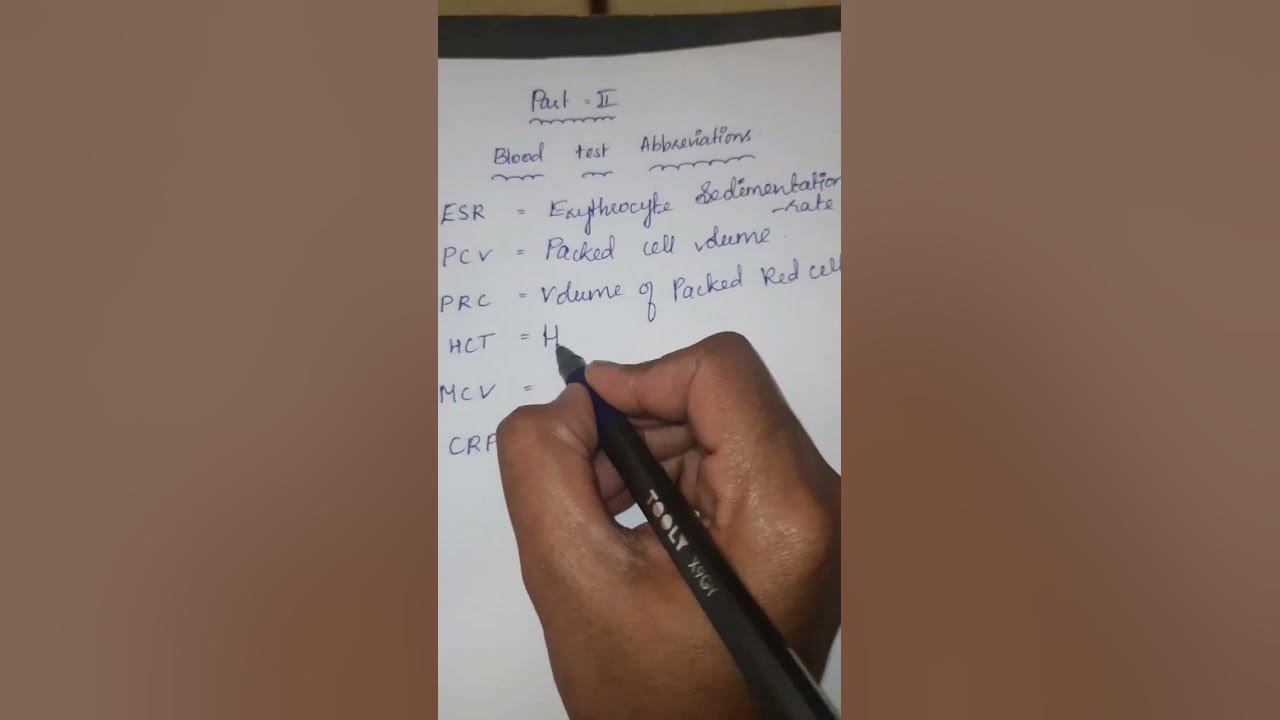 Part - II
Blood test Abbreviations
ESR = Erythrocyte Sedimentation
-rate
PCV = Packed cell volume
PRC = Volume of Packed Red cell
HCT = H
MCV =
CRP
TOOLY X9GY